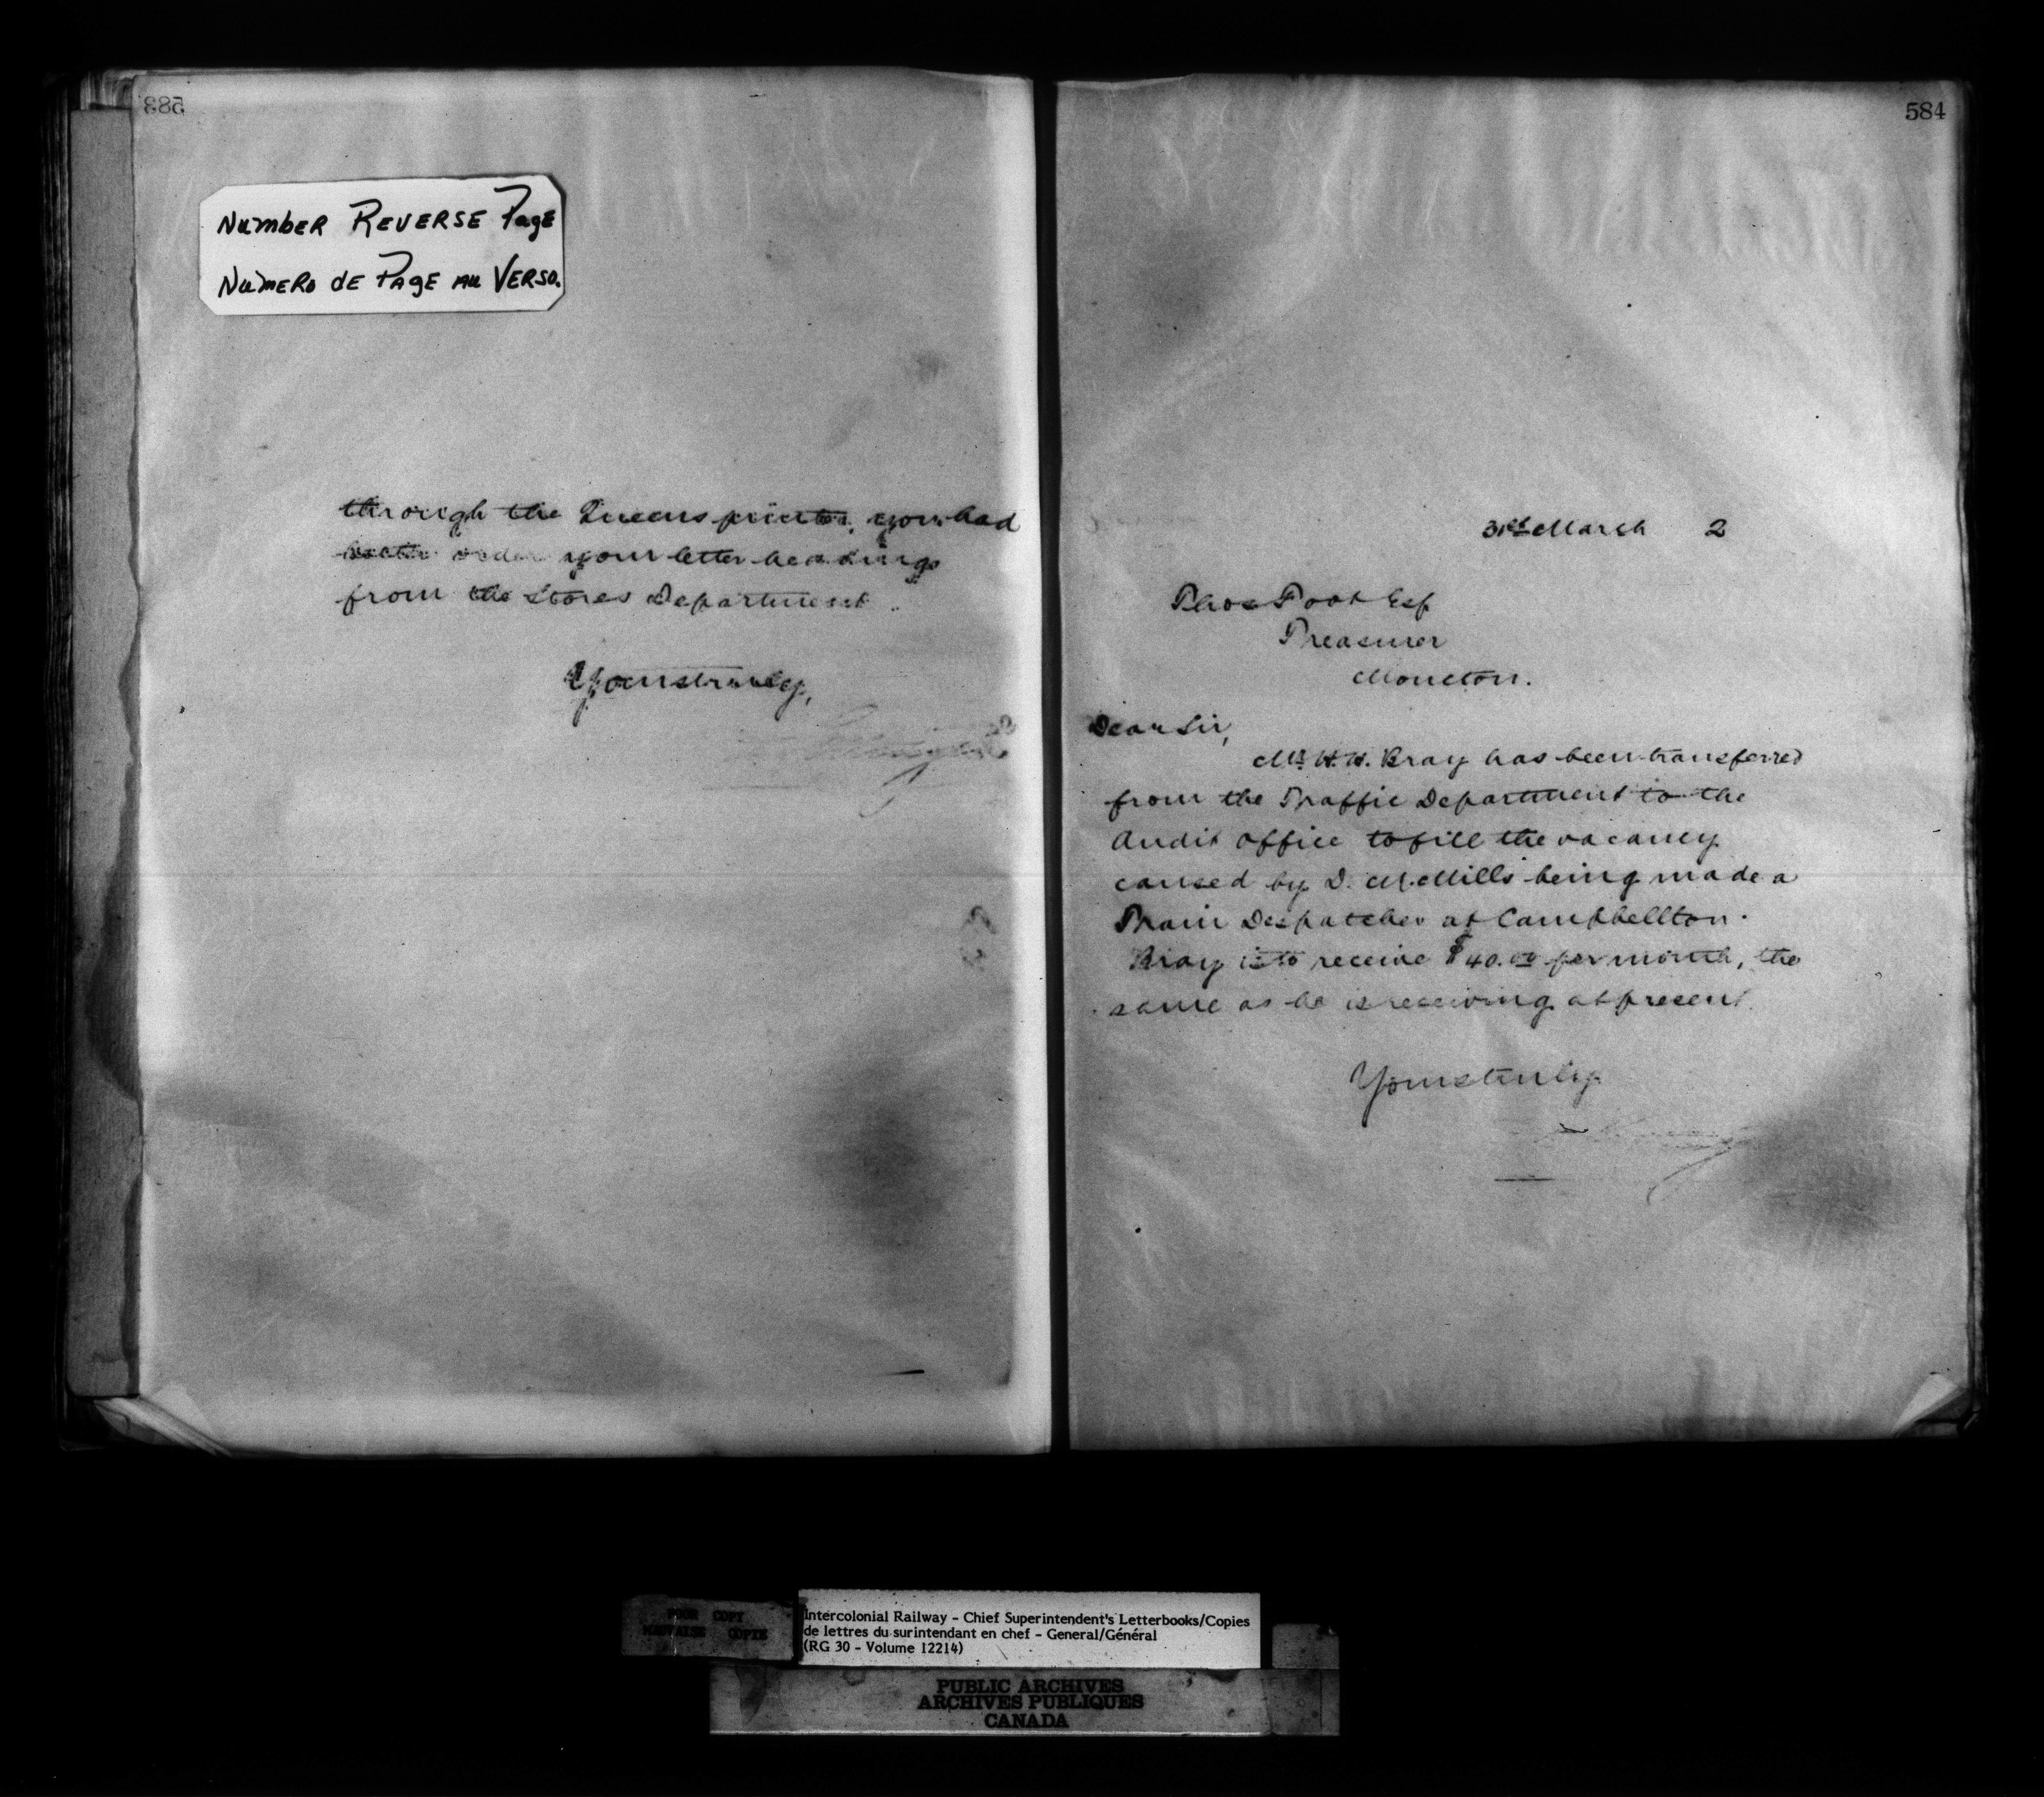 583
Number Reverse Page
Numero de Page au Verso.
through the Queens printer, you had
better order your letter headings
from the Stores Department.
Yours truly,
584
31st March 2
Thos Foot Esq
Treasurer
Moncton.
Dear Sir,
Mr H. H. Bray has been transferred
from the Traffic Department to the
Audit Office to fill the vacancy
caused by D. McMills being made a
Train Despatcher at Campbellton.
Bray is to receive $40.00 per month, the
same as he is receiving at present.
Yours truly
POOR COPY
MAUVAISE COPIE
Intercolonial Railway - Chief Superintendent's Letterbooks/Copies
de lettres du surintendant en chef - General/Général
(RG 30 - Volume 12214)
PUBLIC ARCHIVES
ARCHIVES PUBLIQUES
CANADA